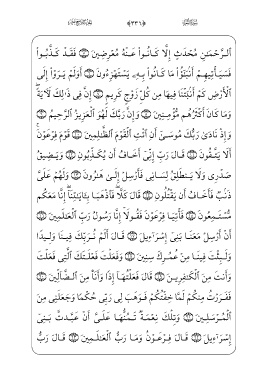 ﴿٣٣١﴾
ٱلرَّحْمَٰنِ مُحْدَثٍ إِلَّا كَانُوا۟ عَنْهُ مُعْرِضِينَ فَقَدْ كَذَّبُوا۟
فَسَيَأْتِيهِمْ أَنۢبَٰٓؤُا۟ مَا كَانُوا۟ بِهِۦ يَسْتَهْزِءُونَ أَوَلَمْ يَرَوْا۟ إِلَى
ٱلْأَرْضِ كَمْ أَنۢبَتْنَا فِيهَا مِن كُلِّ زَوْجٍ كَرِيمٍ إِنَّ فِى ذَٰلِكَ لَءَايَةً
وَمَا كَانَ أَكْثَرُهُم مُّؤْمِنِينَ وَإِنَّ رَبَّكَ لَهُوَ ٱلْعَزِيزُ ٱلرَّحِيمُ
وَإِذْ نَادَىٰ رَبُّكَ مُوسَىٰٓ أَنِ ٱئْتِ ٱلْقَوْمَ ٱلظَّٰلِمِينَ قَوْمَ فِرْعَوْنَ
أَلَا يَتَّقُونَ قَالَ رَبِّ إِنِّىٓ أَخَافُ أَن يُكَذِّبُونِ وَيَضِيقُ
صَدْرِى وَلَا يَنطَلِقُ لِسَانِى فَأَرْسِلْ إِلَىٰ هَٰرُونَ وَلَهُمْ عَلَىَّ
ذَنۢبٌ فَأَخَافُ أَن يَقْتُلُونِ قَالَ كَلَّا فَٱذْهَبَا بِـَٔايَٰتِنَآ إِنَّا مَعَكُم
مُّسْتَمِعُونَ فَأْتِيَا فِرْعَوْنَ فَقُولَآ إِنَّا رَسُولُ رَبِّ ٱلْعَٰلَمِينَ
أَنْ أَرْسِلْ مَعَنَا بَنِىٓ إِسْرَٰٓءِيلَ قَالَ أَلَمْ نُرَبِّكَ فِينَا وَلِيدًا
وَلَبِثْتَ فِينَا مِنْ عُمُرِكَ سِنِينَ وَفَعَلْتَ فَعْلَتَكَ ٱلَّتِى فَعَلْتَ
وَأَنتَ مِنَ ٱلْكَٰفِرِينَ قَالَ فَعَلْتُهَآ إِذًا وَأَنَا۠ مِنَ ٱلضَّآلِّينَ
فَفَرَرْتُ مِنكُمْ لَمَّا خِفْتُكُمْ فَوَهَبَ لِى رَبِّى حُكْمًا وَجَعَلَنِى مِنَ
ٱلْمُرْسَلِينَ وَتِلْكَ نِعْمَةٌ تَمُنُّهَا عَلَىَّ أَنْ عَبَّدتَّ بَنِىٓ
إِسْرَٰٓءِيلَ قَالَ فِرْعَوْنُ وَمَا رَبُّ ٱلْعَٰلَمِينَ قَالَ رَبُّ